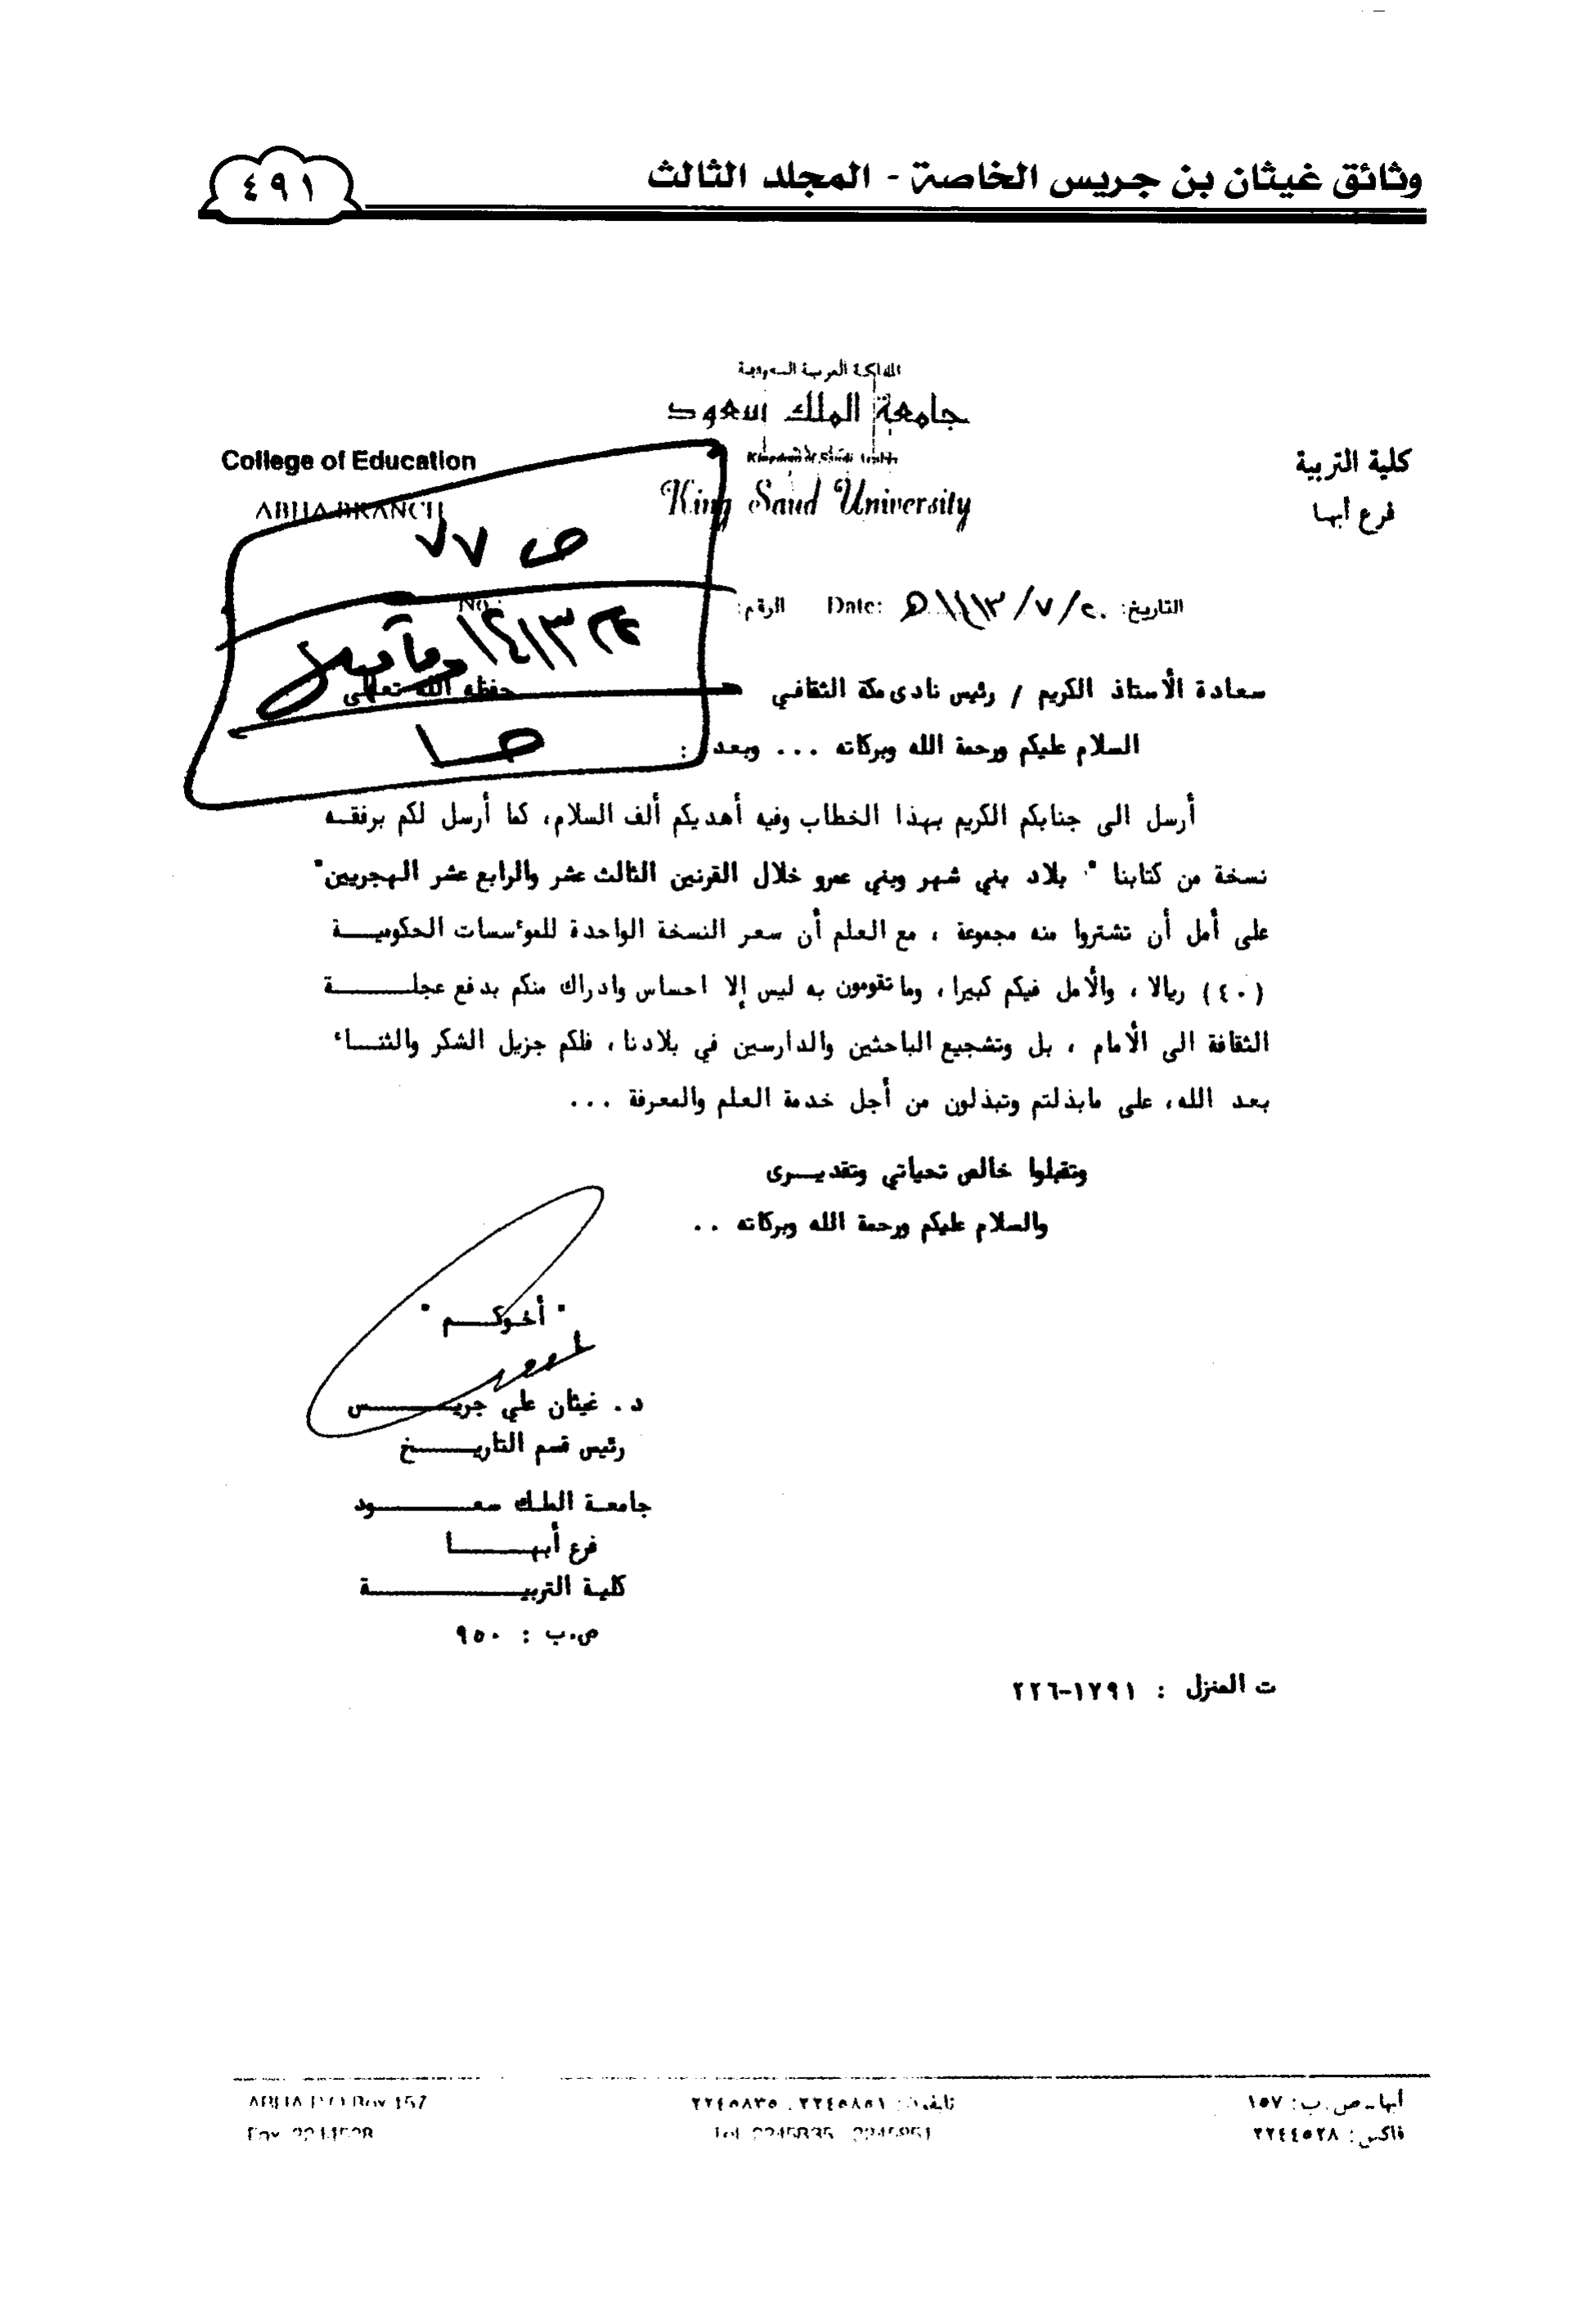 وثائق غيثان بن جريس الخاصة - المجلد الثالث
٤٩١
المملكة العربية السعودية
جامعة الملك سعود
King Saud University
كلية التربية
فرع أبها
College of Education
ABHA BRANCH
ص ٧٧
التاريخ: ٢٠/٧/١٤١٣هـ Date: الرقم: No.
سعادة الأستاذ الكريم / رئيس نادى مكة الثقافي حفظه الله تعالى
السلام عليكم ورحمة الله وبركاته ... وبعد :
أرسل الى جنابكم الكريم بهذا الخطاب وفيه أهديكم ألف السلام، كما أرسل لكم برفقــه
نسخة من كتابنا " بلاد بني شهر وبني عمرو خلال القرنين الثالث عشر والرابع عشر الهجريين"
على أمل أن تشتروا منه مجموعة ، مع العلم أن سعر النسخة الواحدة للموءسسات الحكوميــــة
(٤٠) ريالا ، والأمل فيكم كبيرا ، وما تقومون به ليس إلا احساس وادراك منكم بدفع عجلــــــة
الثقافة الى الأمام ، بل وتشجيع الباحثين والدارسين في بلادنا ، فلكم جزيل الشكر والثنــاء
بعد الله، على مابذلتم وتبذلون من أجل خدمة العلم والمعرفة ...
وتقبلوا خالص تحياتي وتقديــرى
والسلام عليكم ورحمة الله وبركاته ..
" أخوكــــم "
د . غيثان علي جريـــــــس
رئيس قسم التاريــــــخ
جامعة الملك سعـــــــود
فرع أبهـــــــا
كلية التربيـــــــــة
ص.ب : ٩٥٠
ت المنزل : ١٧٩١-٢٢٦
أبها ـ ص . ب : ١٥٧
تليفون : ٢٢٤٥٨٥١ . ٢٢٤٥٨٣٥
ABHA P.O Box 157
فاكس : ٢٢٤٤٥٢٨
Tel. 2245835 - 2245851
Fax. 2244528